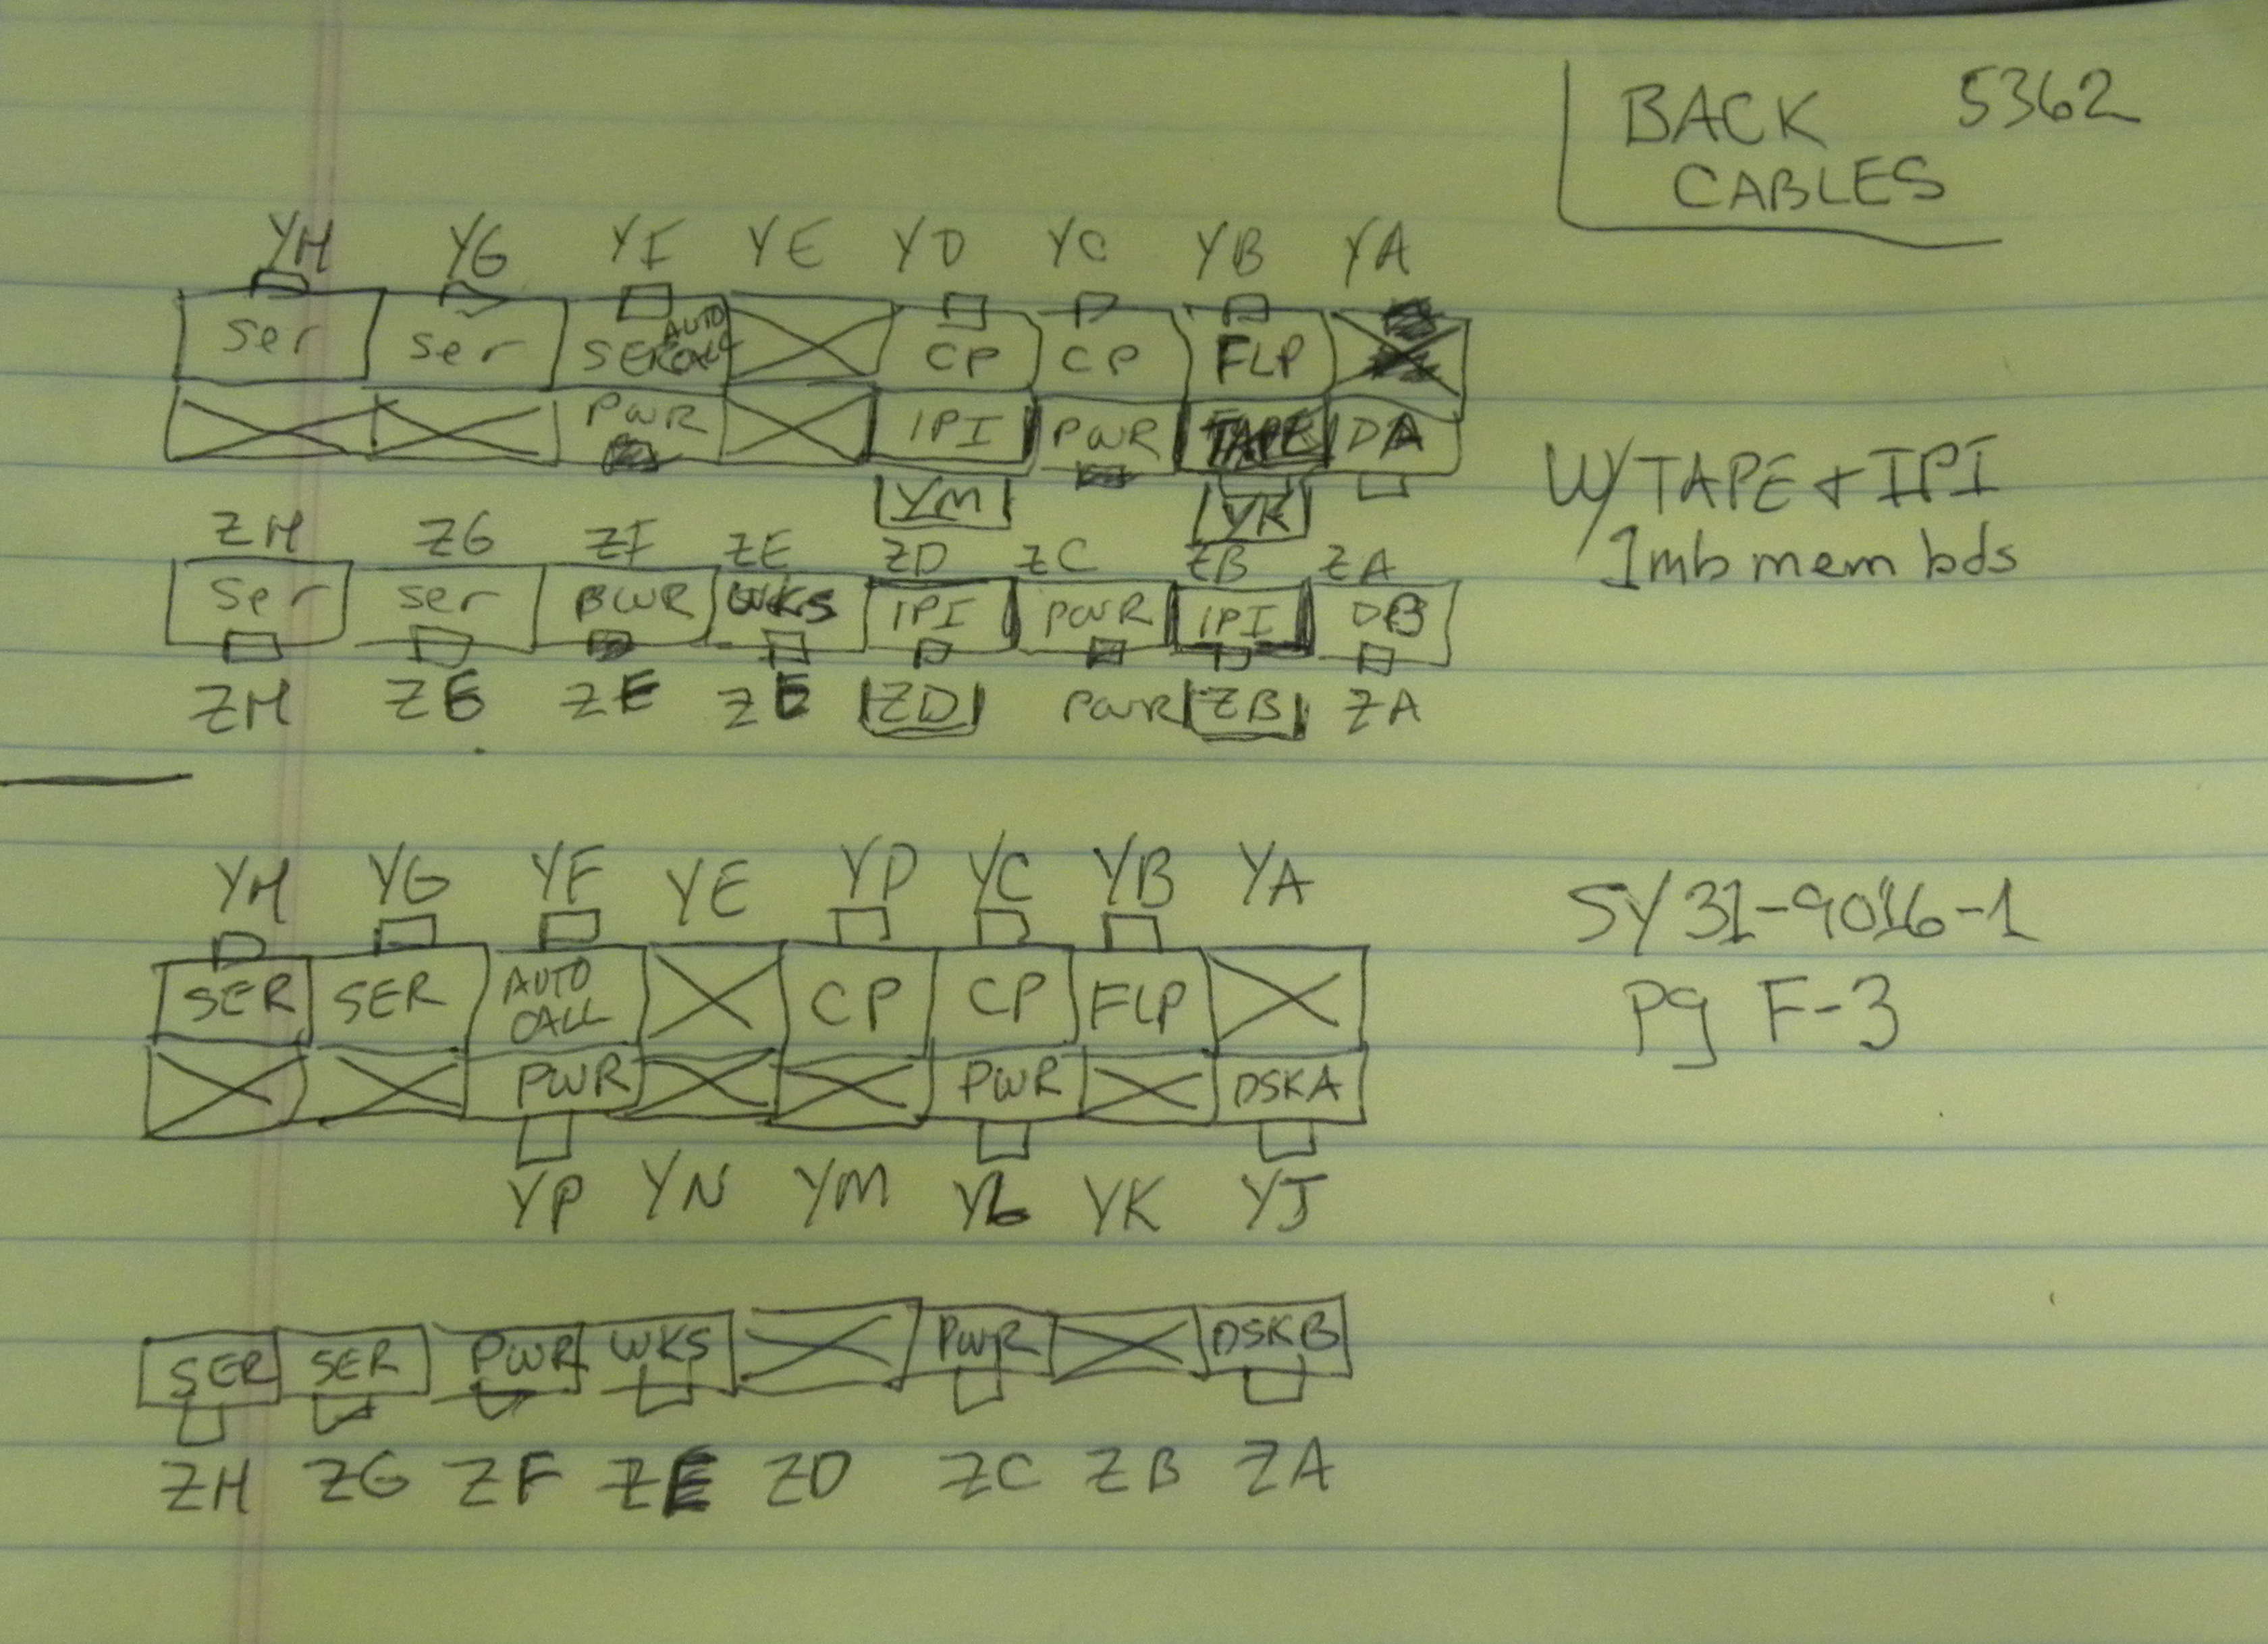 BACK 5362
CABLES
YH YG YI YE YD YC YB YA
ser ser SER AUTO CALL CP CP FLP
PWR IPI PWR TAPE DA
YM YK
ZH ZG ZF ZE ZD ZC ZB ZA
Ser ser PWR WKS IPI PWR IPI DB
ZH ZG ZF ZE ZD PWR ZB ZA
W/ TAPE + IPI
1mb mem bds
YH YG YF YE YD YC YB YA
SER SER AUTO CALL CP CP FLP
PWR PWR DSKA
YP YN YM YL YK YJ
SER SER PWR WKS PWR DSKB
ZH ZG ZF ZE ZD ZC ZB ZA
SY31-9016-1
Pg F-3